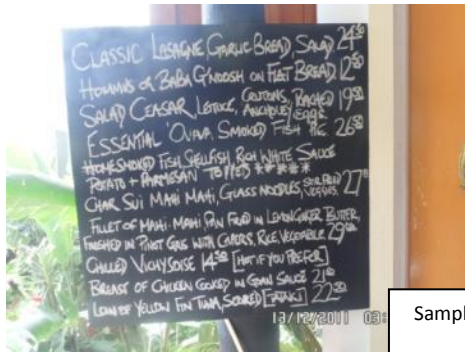 CLASSIC LASAGNE GARLIC BREAD, SALAD 24.50
HOUMUS or BABA G'NOOSH ON FLAT BREAD 12.50
SALAD CEASAR, LETTUCE, CROUTONS, POACHED EGGS, ANCHOVEY 19.50
ESSENTIAL 'OVAVA SMOKED FISH PIE 26.50
HOMESMOKED FISH, SHELLFISH, RICH WHITE SAUCE
POTATO + PARMESAN TOPPED *****
CHAR SUI MAHI MAHI, GLASS NOODLES, STIR FRIED VEGGIES. 27
FILLET OF MAHI-MAHI, PAN FRIED IN LEMON GINGER BUTTER,
FINISHED IN PINOT GRIS WITH CAPERS, RICE, VEGETABLE 29
CHILLED VICHYSOISE 14.50 [HOT IF YOU PREFER]
BREAST OF CHICKEN COOKED IN GOAN SAUCE 21
LOIN OF YELLOW FIN TUNA, SEARED [TATAKI] 22.50
13/12/2011 03:
Sampl